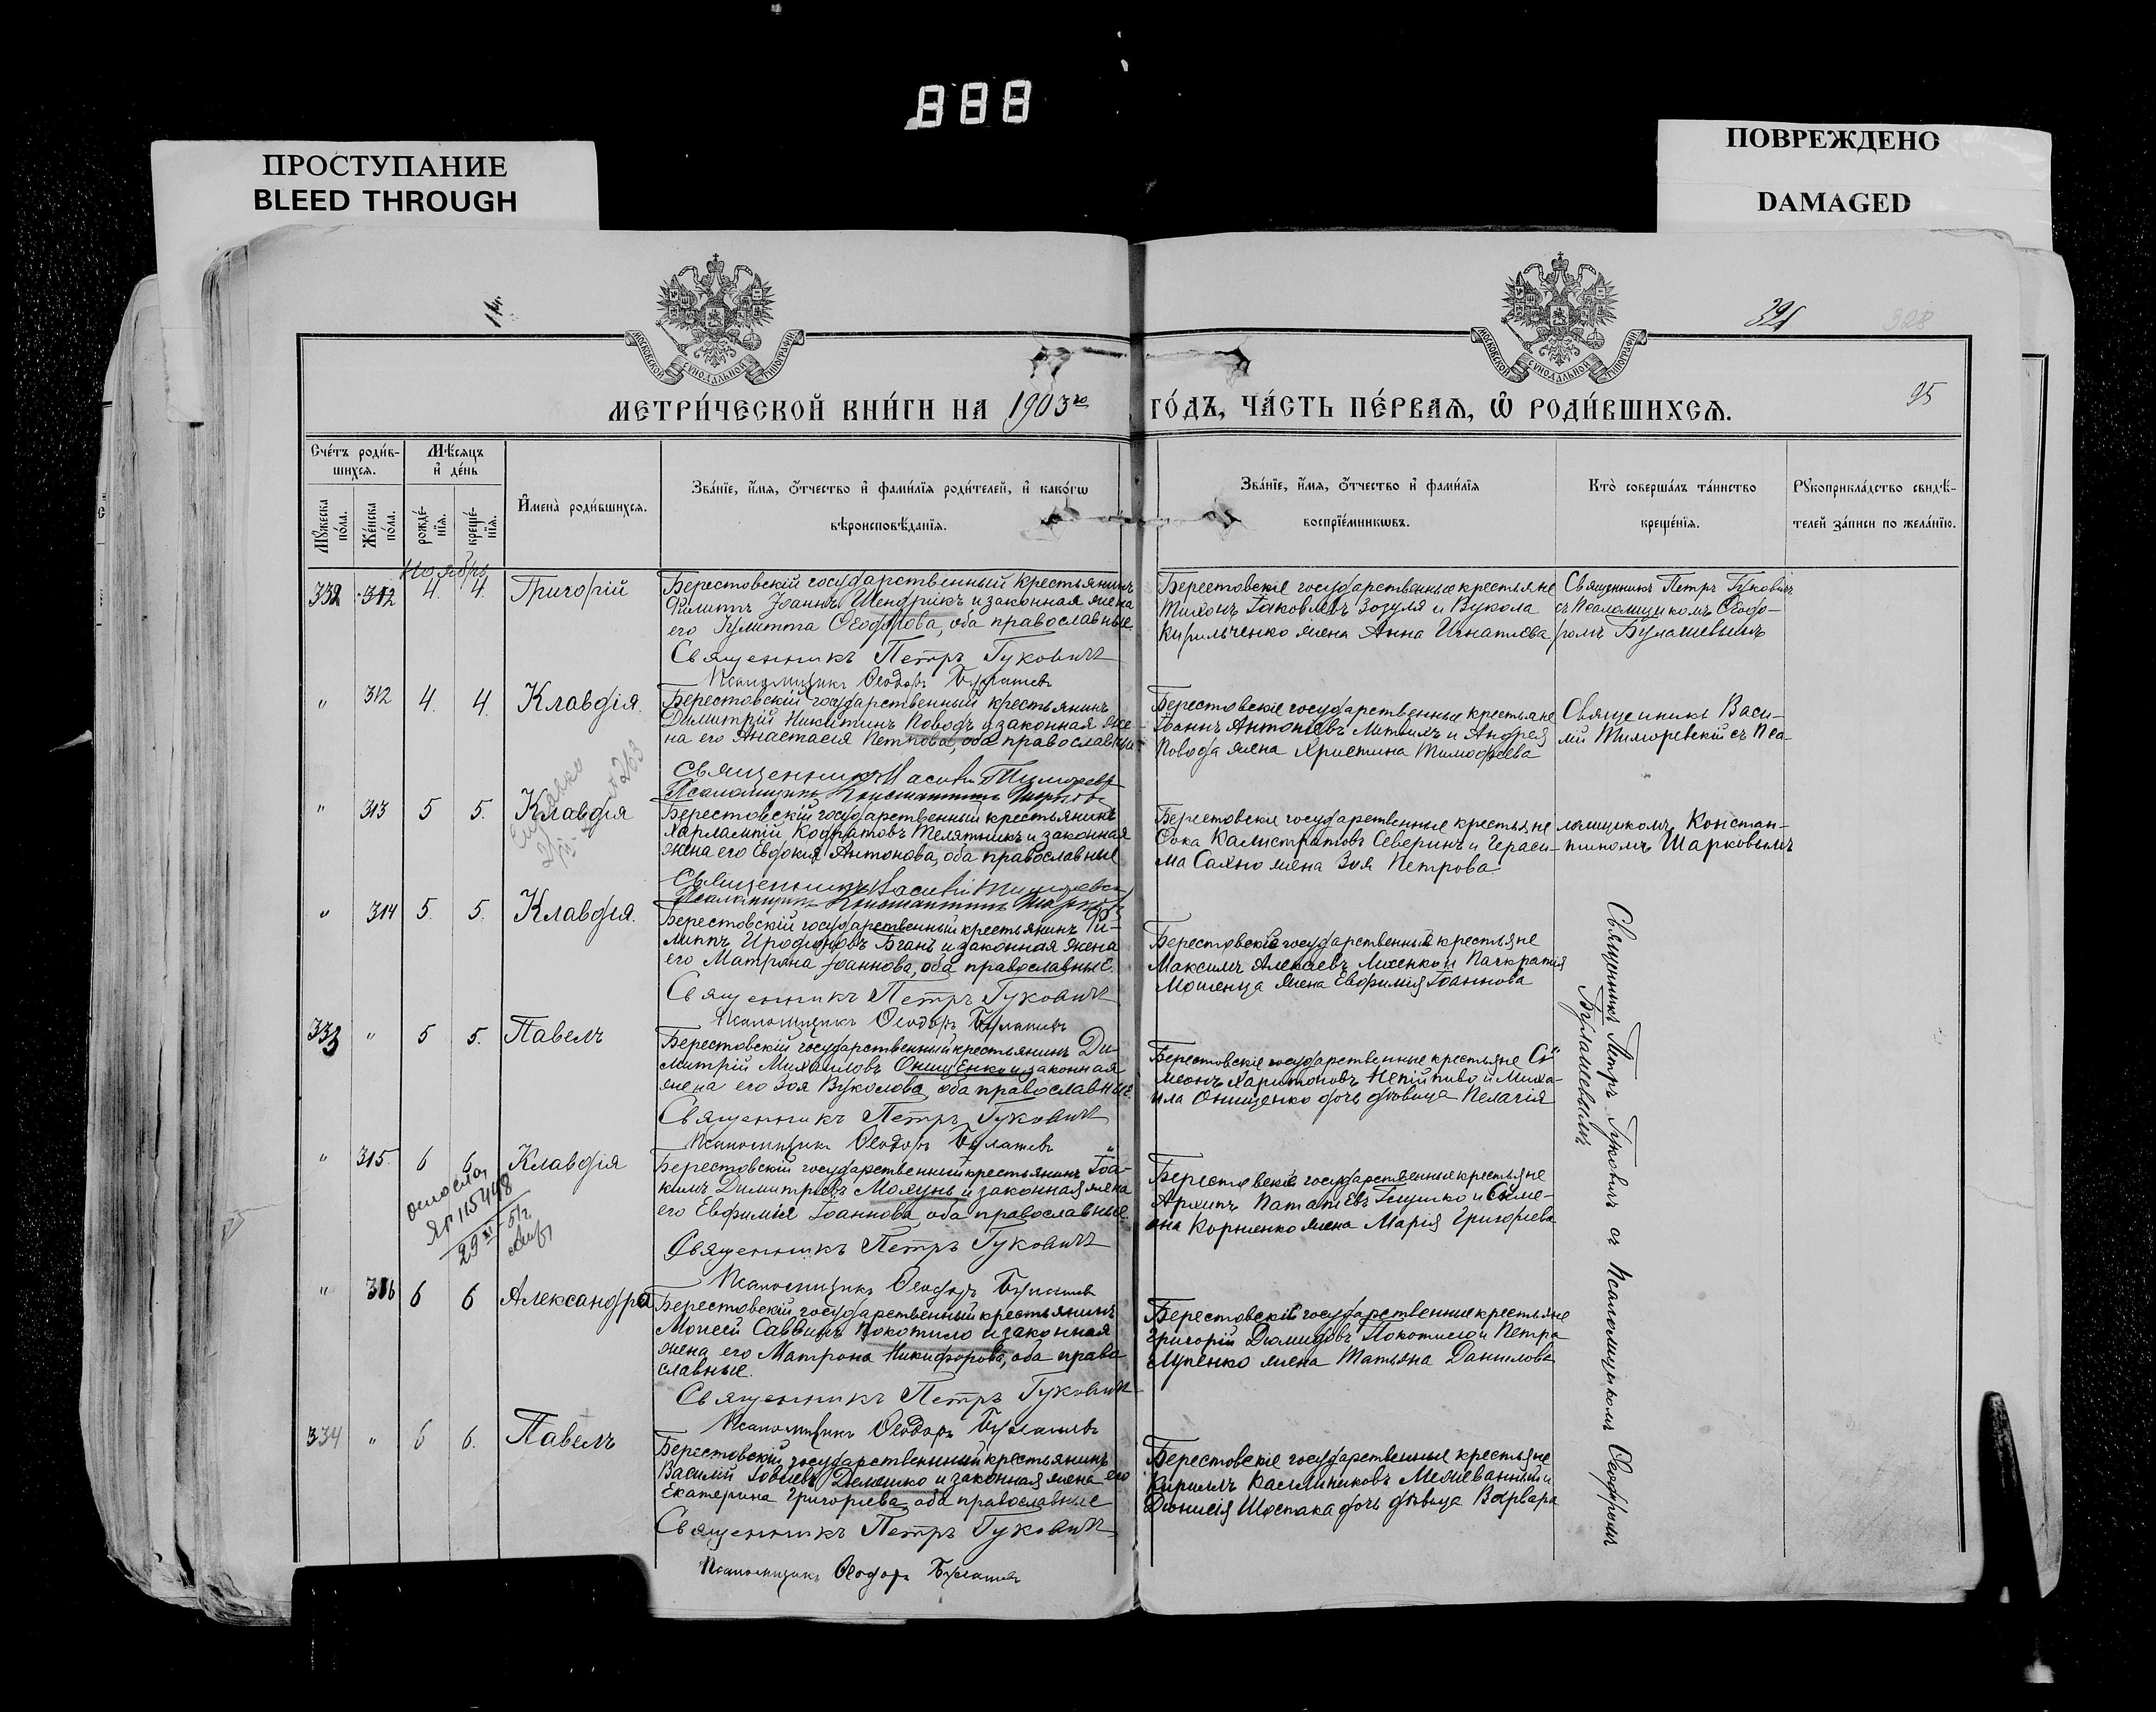 888
ПРОСТУПАНИЕ
BLEED THROUGH
ПОВРЕЖДЕНО
DAMAGED
МОСКОВСКОЙ СѴНОДАЛЬНОЙ ТИПОГРАФІИ
МОСКОВСКОЙ СѴНОДАЛЬНОЙ ТИПОГРАФІИ
328
95
МЕТРИ́ЧЕСКОЙ КНИ́ГИ НА 1903го ГО́ДЪ, ЧА́СТЬ ПЕ́РВАЯ, Ѡ РОДИ́ВШИХСЯ.
Сче́тъ роди́в-
шихся.
Мѣ́сяцъ
и де́нь
Му́жеска по́ла.
Же́нска по́ла.
рожде́-
нїя.
креще́-
нїя.
Имена̀ роди́вшихся.
Зва́нїе, и́мя, о́тчество и фами́лїя роди́телей, и како́гѡ
вѣроисповѣ́данїя.
Зва́нїе, и́мя, о́тчество и фами́лїя
воспрїе́мникѡвъ.
Кто̀ соверша́лъ та́инство
креще́нїя.
Рꙋкоприкла́дство свидѣ́-
телей за́писи по жела́нїю.
Ноябрь
332 312 4. 4. Григорій
Берестовскій государственный крестьянинъ
Филиппъ Іоаннъ Шендрикъ и законная жена
его Іулитта Ѳеодорова, оба православные.
Священникъ Петръ Гуковичъ
Псаломщикъ Ѳеодоръ Булашевъ
Берестовскіе государственные крестьяне
Тихонъ Іаковлевъ Зозуля и Вукола
Кирильченко жена Анна Игнатіева
Священникъ Петръ Гуковичъ
съ Псаломщикомъ Ѳеодо-
ромъ Булашевымъ
" 312 4. 4. Клавдія.
Берестовскій государственный крестьянинъ
Димитрій Никитинъ Поводъ и законная же-
на его Анастасія Петрова, оба православные
Берестовскіе государственные крестьяне
Іоаннъ Антоніевъ Литвинъ и Андрея
Повода жена Христина Тимофеева
Священникъ Васи-
лій Тиморевскій съ Пса-
" 313 5 5. Клавдія
Берестовскій государственный крестьянинъ
Харлампій Кодратовъ Телятникъ и законная
жена его Евдокія Антонова, оба православные
Берестовскіе государственные крестьяне
Фока Калистратовъ Северинъ и Гераси-
ма Сахно жена Зоя Петрова.
ломщикомъ Констан-
тиномъ Шарковымъ
" 314 5. 5. Клавдія.
Берестовскій государственный крестьянинъ Фи-
липпъ Иродіоновъ Бганъ и законная жена
его Матрона Іоаннова, оба православные.
Священникъ Петръ Гуковичъ
Псаломщикъ Ѳеодоръ Булашевъ
Берестовскіе государственные крестьяне
Максимъ Алексѣевъ Лихенко и Панкратія
Мошенца жена Евфимія Іоаннова
Священникъ Петръ Гуковичъ съ Псаломщикомъ Ѳеодоромъ
Булашевымъ
333 " 5 5. Павелъ
Берестовскій государственный крестьянинъ Ди-
митрій Михаиловъ Онищенко и законная
жена его Зоя Вуколова, оба православные.
Священникъ Петръ Гуковичъ
Псаломщикъ Ѳеодоръ Булашевъ
Берестовскіе государственные крестьяне Си-
меонъ Харитоновъ Непійпиво и Миха-
ила Онищенко дочь дѣвица Пелагія
" 315. 6 6. Клавдія
Берестовскій государственный крестьянинъ Іоа-
кимъ Димитріевъ Молунъ и законная жена
его Евфимія Іоаннова, оба православные.
Священникъ Петръ Гуковичъ
Псаломщикъ Ѳеодоръ Булашевъ
Берестовскіе государственные крестьяне
Архипъ Патапіевъ Глушко и Симе-
она Корніенко жена Марія Григоріева
" 316 6 6 Александра
Берестовскій государственный крестьянинъ
Моисей Саввинъ Покотило и законная
жена его Матрона Никифорова, оба право
славные.
Священникъ Петръ Гуковичъ
Псаломщикъ Ѳеодоръ Булашевъ
Берестовскіе государственные крестьяне
Григорій Діомидовъ Покотило и Петра
Лупенко жена Татьяна Данилова
334 " 6 6. Павелъ
Берестовскій государственный крестьянинъ
Василій Іовлевъ Демешко и законная жена его
Екатерина Григоріева, оба православные
Священникъ Петръ Гуковичъ
Псаломщикъ Ѳеодоръ Булашевъ
Берестовскіе государственные крестьяне
Кириллъ Каллиниковъ Межеванный и
Діонисія Шостака дочь дѣвица Варвара